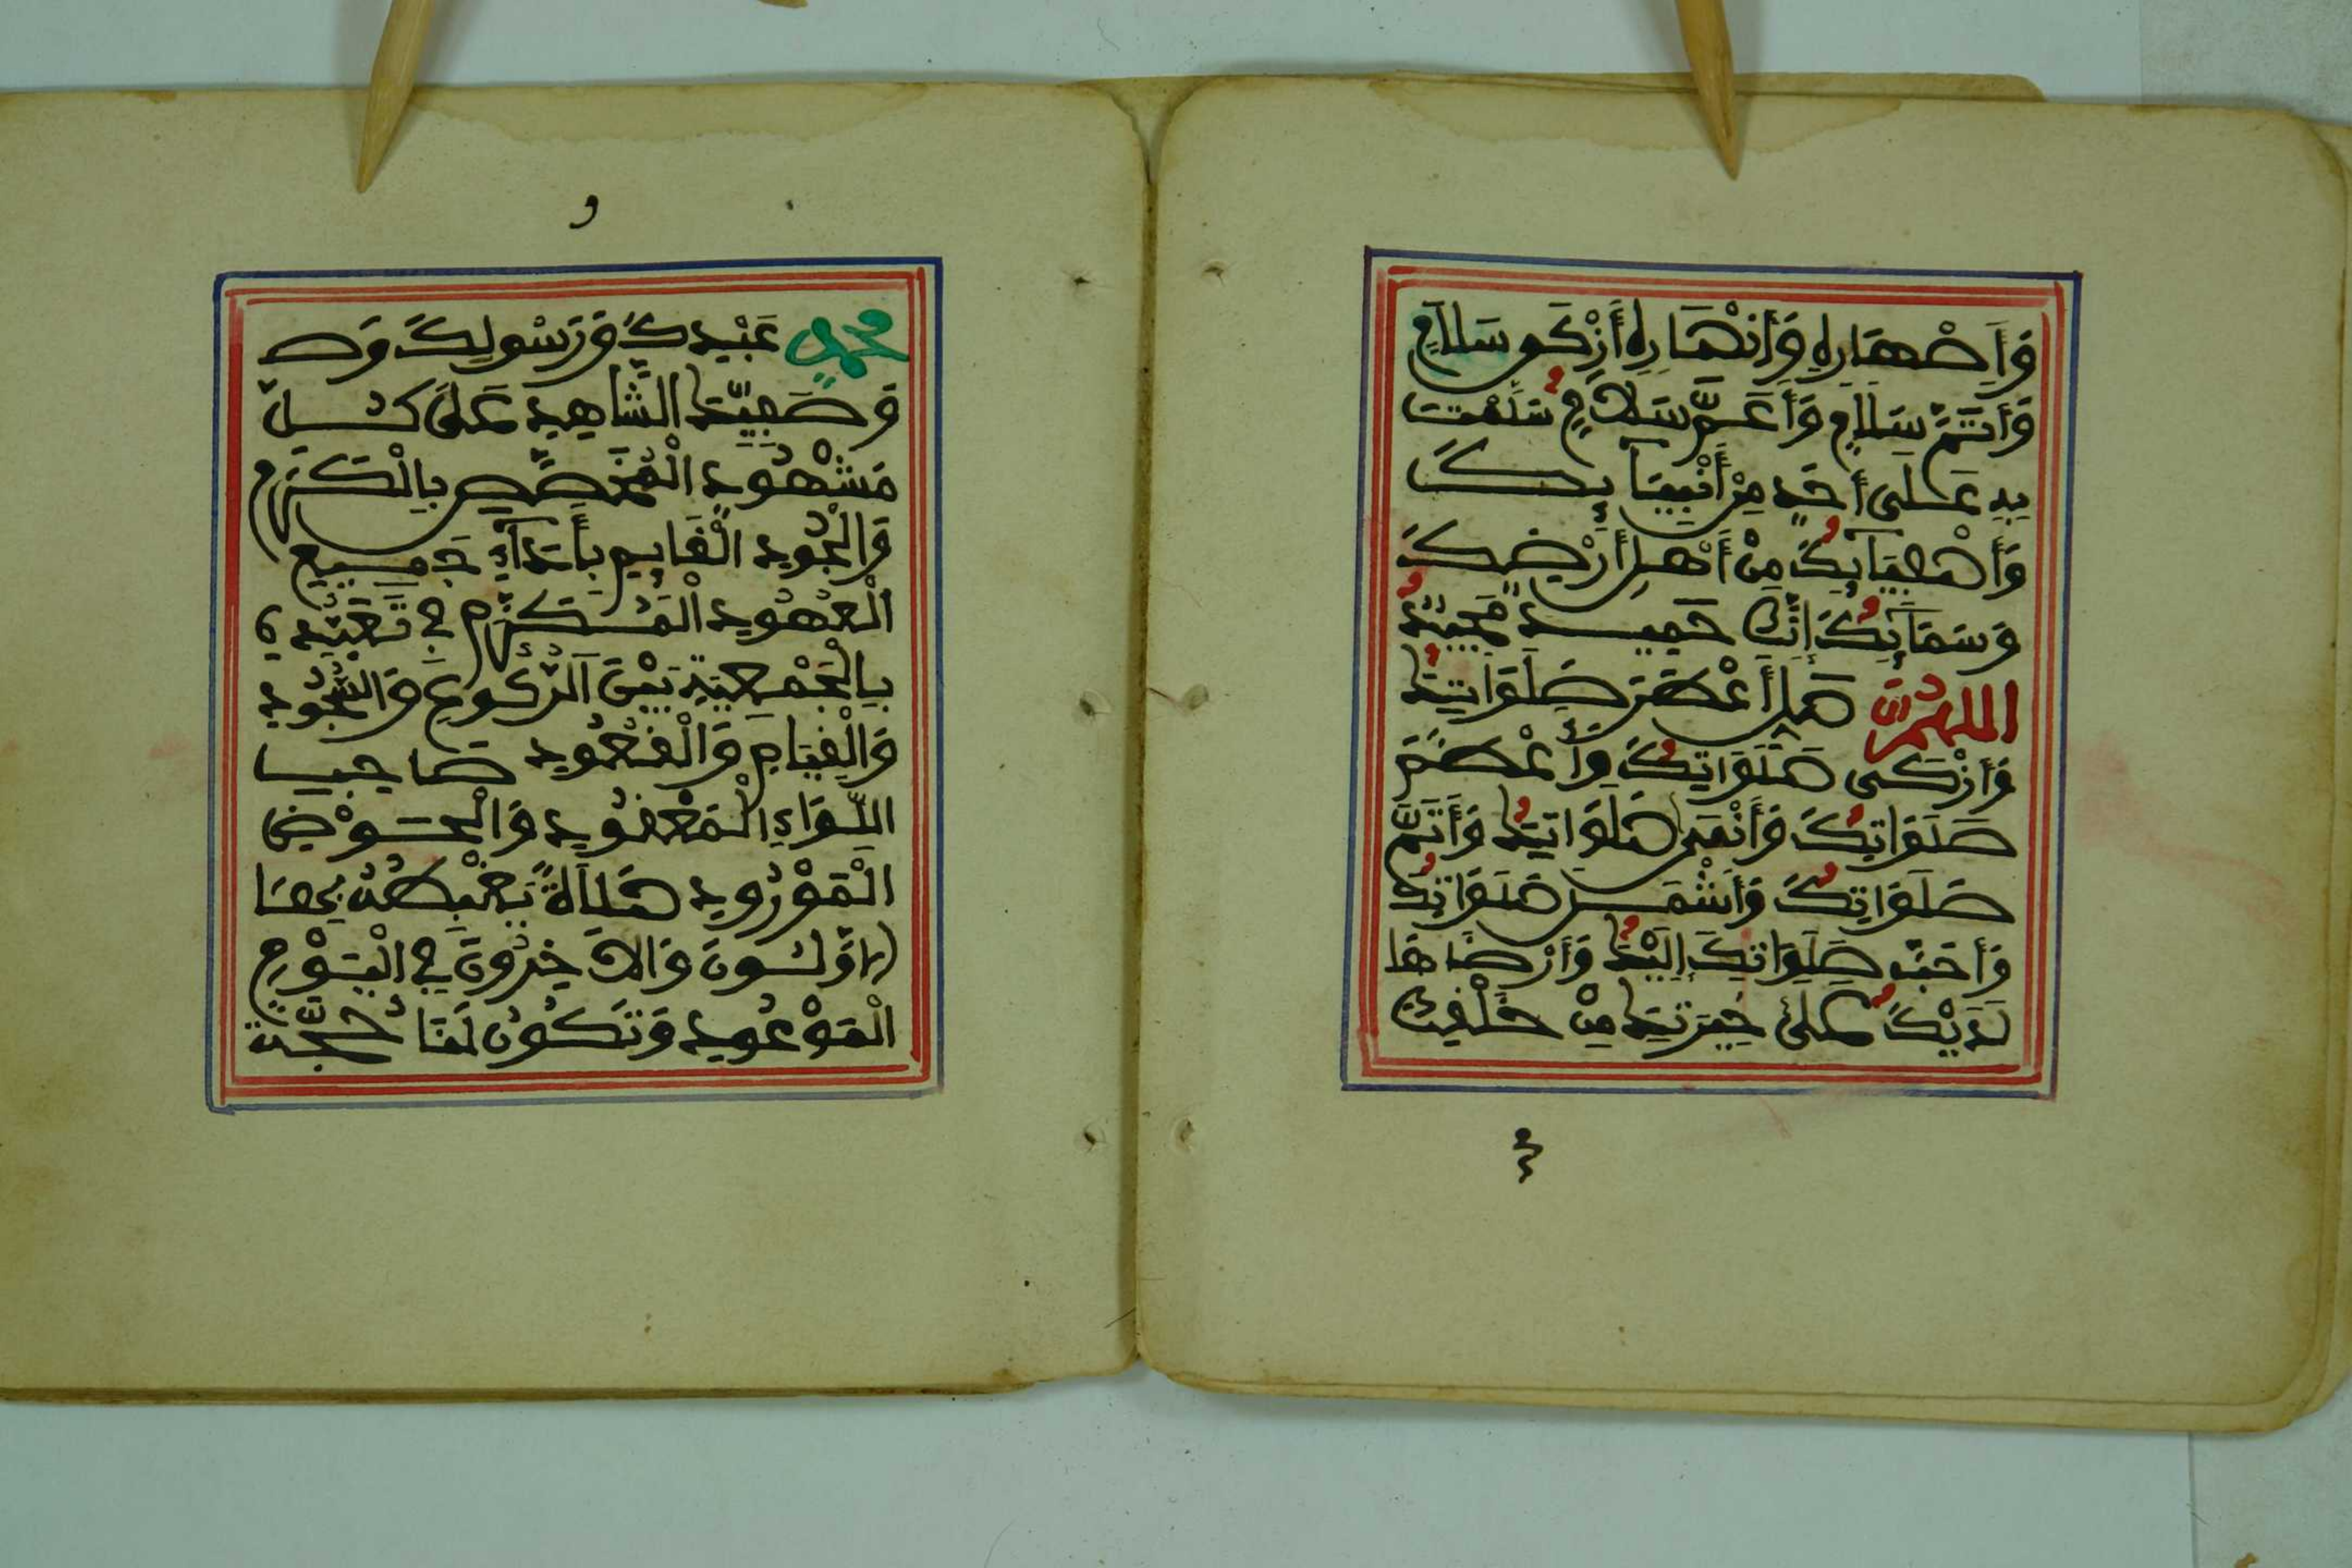 وَأَصْهَارِهِ وَأَنْصَارِهِ أَزْكَى سَلَامٍ
وَأَتَمَّ سَلَامٍ وَأَعَمَّ سَلَامٍ سَلَّمْتَ
بِهِ عَلَى أَحَدٍ مِنْ أَنْبِيَآئِكَ
وَأَصْفِيَآئِكَ مِنْ أَهْلِ أَرْضِكَ
وَسَمَآئِكَ إِنَّكَ حَمِيدٌ مَجِيدٌ
اللهُمَّ صَلِّ أَعْظَمَ صَلَوَاتِكَ
وَأَزْكَى صَلَوَاتِكَ وَأَعْظَمَ
صَلَوَاتِكَ وَأَنْمَى صَلَوَاتِكَ وَأَتَمَّ
صَلَوَاتِكَ وَأَشْمَلَ صَلَوَاتِكَ
وَأَحَبَّ صَلَوَاتِكَ إِلَيْكَ وَأَرْضَاهَا
لَدَيْكَ عَلَى خِيرَتِكَ مِنْ خَلْقِكَ
محمد عَبْدِكَ وَرَسُولِكَ وَصَ
وَصَفِيِّكَ الشَّاهِدِ عَلَى كُلِّ
مَشْهُودٍ الْمُخَصَّصِ بِالْكَرَمِ
وَالْجُودِ الْقَائِمِ بِأَدَآءِ جَمِيعِ
الْعُهُودِ الْمُكَرَّمِ فِي تَعَبُّدِهِ
بِالْجَمْعِيَّةِ بَيْنَ الرُّكُوعِ وَالسُّجُودِ
وَالْقِيَامِ وَالْقُعُودِ صَاحِبِ
اللِّوَاءِ الْمَعْقُودِ وَالْحَوْضِ
الْمَوْرُودِ صَلَاةً يَغْبِطُهُ بِهَا
الْأَوَّلُونَ وَالْآخِرُونَ فِي الْيَوْمِ
الْمَوْعُودِ وَتَكُونُ لَنَا حُجَّةً